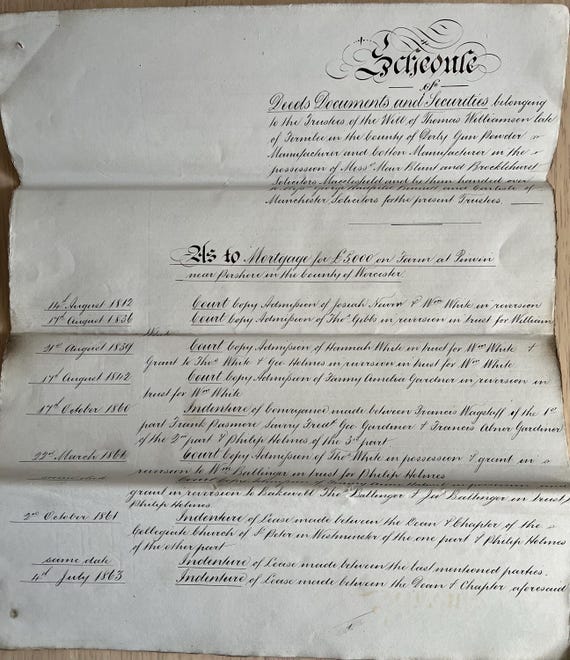 Schedule
of
Deeds Documents and Securities belonging
to the Trustees of the Will of Thomas Williamson late
of Fernilee in the County of Derby Gun Powder
Manufacturer and Cotton Manufacturer in the
possession of Mess.rs Mair Blunt and Brocklehurst
Solicitors Macclesfield and by them handed over
Manchester Solicitors for the present Trustees.
As to Mortgage for £5000 on Farm at Pinvin
near Pershore in the County of Worcester
14th August 1812 Court Copy Admission of Josiah & Wm White in reversion
17th August 1836 Court Copy Admission of Thos Gibbs in reversion in trust for William
21st August 1839 Court Copy Admission of Hannah White in trust for Wm White &
Grant to Thos White & Geo Holmes in reversion in trust for Wm White
17th August 1842 Court Copy Admission of Fanny Amelia Gardner in reversion in
trust for Wm White
17th October 1860 Indenture of Conveyance made between Francis Wagstaff of the 1st
part Frank Pasmore Geo Gardiner & Frances Abner Gardiner
of the 2nd part & Philip Holmes of the 3rd part
22nd March 1861 Court Copy Admission of Thos White in possession & grant in
reversion to Wm Ballinger in trust for Philip Holmes
same date Court Copy Admission of in possession
grant in reversion to Bakewell Thos Ballinger & Jas Ballinger in trust
Philip Holmes
2nd October 1861 Indenture of Lease made between the Dean & Chapter of the
Collegiate Church of St Peter in Westminster of the one part & Philip Holmes
of the other part
same date Indenture of Lease made between the last mentioned parties.
4th July 1863 Indenture of Lease made between the Dean & Chapter aforesaid